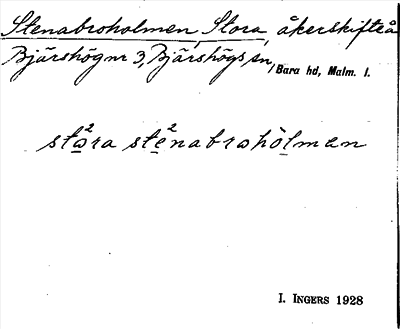 Stenabroholmen, Stora, åkerskifte å
Bjärshög nr 3, Bjärshögs sn, Bara hd, Malm. l.
stω²ra ste²nabrωhòlmen
I. INGERS 1928